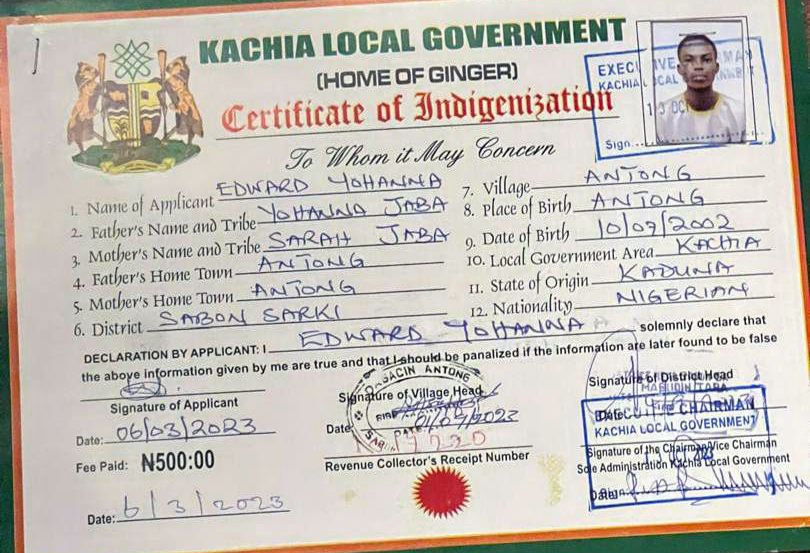 KACHIA LOCAL GOVERNMENT
(HOME OF GINGER)
Certificate of Indigenization
To Whom it May Concern
EXECU IVE MAN
KACHIA LOCAL
13 OCT
Sign.
1. Name of Applicant EDWARD YOHANNA
2. Father's Name and Tribe YOHANNA JABA
3. Mother's Name and Tribe SARAH JABA
4. Father's Home Town ANTONG
5. Mother's Home Town ANTONG
6. District SABON SARKI
7. Village ANTONG
8. Place of Birth ANTONG
9. Date of Birth 10/09/2002
10. Local Government Area KACHIA
11. State of Origin KADUNA
12. Nationality NIGERIAN
DECLARATION BY APPLICANT: I EDWARD YOHANNA solemnly declare that
the above information given by me are true and that I should be panalized if the information are later found to be false
Signature of Applicant
Date: 06/03/2023
Fee Paid: ₦500:00
Date: 6/3/2023
DAGACIN ANTONG
Signature of Village Head
Date
DATE 01/09/2023
Revenue Collector's Receipt Number
Signature of District Head
Date
EXECUTIVE CHAIRMAN
KACHIA LOCAL GOVERNMENT
Signature of the Chairman/Vice Chairman
Sole Administration Kachia Local Government